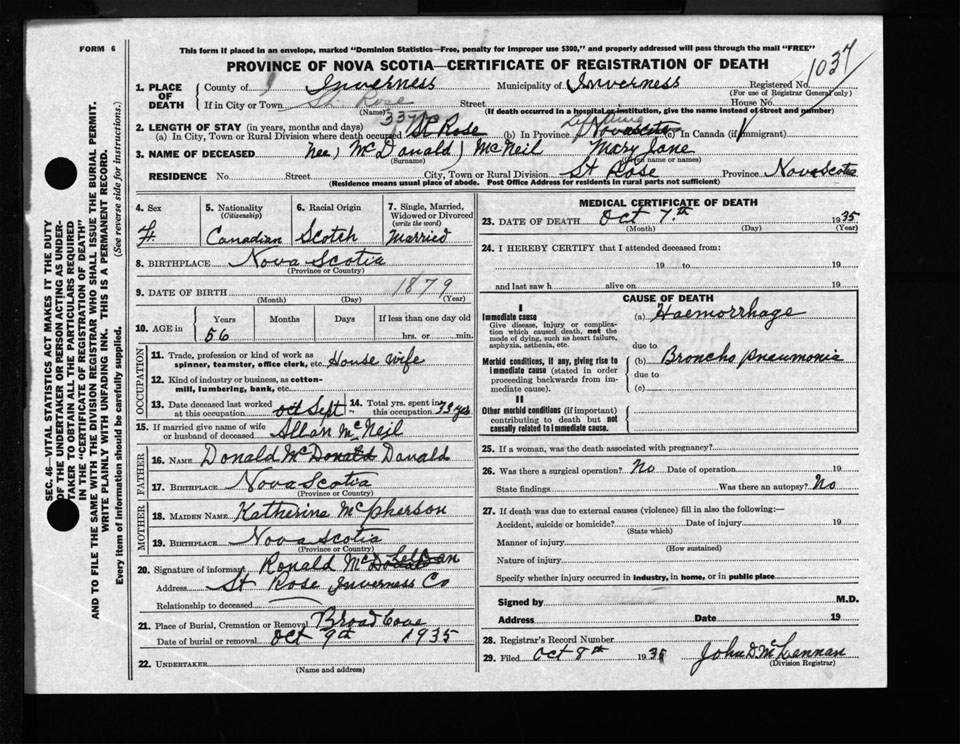 FORM 6
This form if placed in an envelope, marked "Dominion Statistics—Free, penalty for improper use $300," and properly addressed will pass through the mail "FREE"
PROVINCE OF NOVA SCOTIA—CERTIFICATE OF REGISTRATION OF DEATH
1037
1. PLACE OF DEATH
County of Inverness Municipality of Inverness Registered No.
(For use of Registrar General only)
If in City or Town St. Rose Street House No.
(Name) (If death occurred in a hospital or institution, give the name instead of street and number)
2. LENGTH OF STAY (in years, months and days)
(a) In City, Town or Rural Division where death occurred 33 yrs St Rose (b) In Province Nova Scotia (c) In Canada (if immigrant)
3. NAME OF DECEASED nee) McDonald) McNeil Mary Jane
(Surname) (Given name or names)
RESIDENCE No. Street City, Town or Rural Division St Rose Province Nova Scotia
(Residence means usual place of abode. Post Office Address for residents in rural parts not sufficient)
4. Sex F.
5. Nationality (Citizenship) Canadian
6. Racial Origin Scotch
7. Single, Married, Widowed or Divorced (write the word) Married
8. BIRTHPLACE Nova Scotia
(Province or Country)
9. DATE OF BIRTH 1879
(Month) (Day) (Year)
10. AGE in Years Months Days If less than one day old
56 hrs. or min.
OCCUPATION
11. Trade, profession or kind of work as spinner, teamster, office clerk, etc. House wife
12. Kind of industry or business, as cotton-mill, lumbering, bank, etc.
13. Date deceased last worked at this occupation oct Sept
14. Total yrs. spent in this occupation 33 yrs
15. If married give name of wife or husband of deceased Allan McNeil
FATHER
16. NAME Donald McDonald Donald
17. BIRTHPLACE Nova Scotia
(Province or Country)
MOTHER
18. MAIDEN NAME Katherine McPherson
19. BIRTHPLACE Nova Scotia
(Province or Country)
20. Signature of informant Ronald
Address St Rose Inverness Co
Relationship to deceased
21. Place of Burial, Cremation or Removal Broad Cove
Date of burial or removal Oct 9th 1935
22. UNDERTAKER
(Name and address)
MEDICAL CERTIFICATE OF DEATH
23. DATE OF DEATH Oct 7.th 1935
(Month) (Day) (Year)
24. I HEREBY CERTIFY that I attended deceased from:
19 to 19
and last saw h alive on 19
CAUSE OF DEATH
I
Immediate cause
Give disease, injury or complication which caused death, not the mode of dying, such as heart failure, asphyxia, asthenia, etc.
(a) Haemorrhage
due to
Morbid conditions, if any, giving rise to immediate cause (stated in order proceeding backwards from immediate cause).
(b) Broncho pneumonia
due to
(c)
II
Other morbid conditions (if important) contributing to death but not causally related to immediate cause.
25. If a woman, was the death associated with pregnancy?
26. Was there a surgical operation? No Date of operation 19
State findings Was there an autopsy? No
27. If death was due to external causes (violence) fill in also the following:—
Accident, suicide or homicide? Date of injury 19
(State which)
Manner of injury
(How sustained)
Nature of injury
Specify whether injury occurred in industry, in home, or in public place
Signed by M.D.
Address Date 19
28. Registrar's Record Number
29. Filed Oct 8th 1935 John D McLennan
(Division Registrar)
SEC. 46—VITAL STATISTICS ACT MAKES IT THE DUTY
OF THE UNDERTAKER OR PERSON ACTING AS UNDER-
TAKER TO OBTAIN ALL THE PARTICULARS REQUIRED
IN THE "CERTIFICATE OF REGISTRATION OF DEATH"
AND TO FILE THE SAME WITH THE DIVISION REGISTRAR WHO SHALL ISSUE THE BURIAL PERMIT.
WRITE PLAINLY WITH UNFADING INK. THIS IS A PERMANENT RECORD.
Every item of information should be carefully supplied. (See reverse side for instructions.)